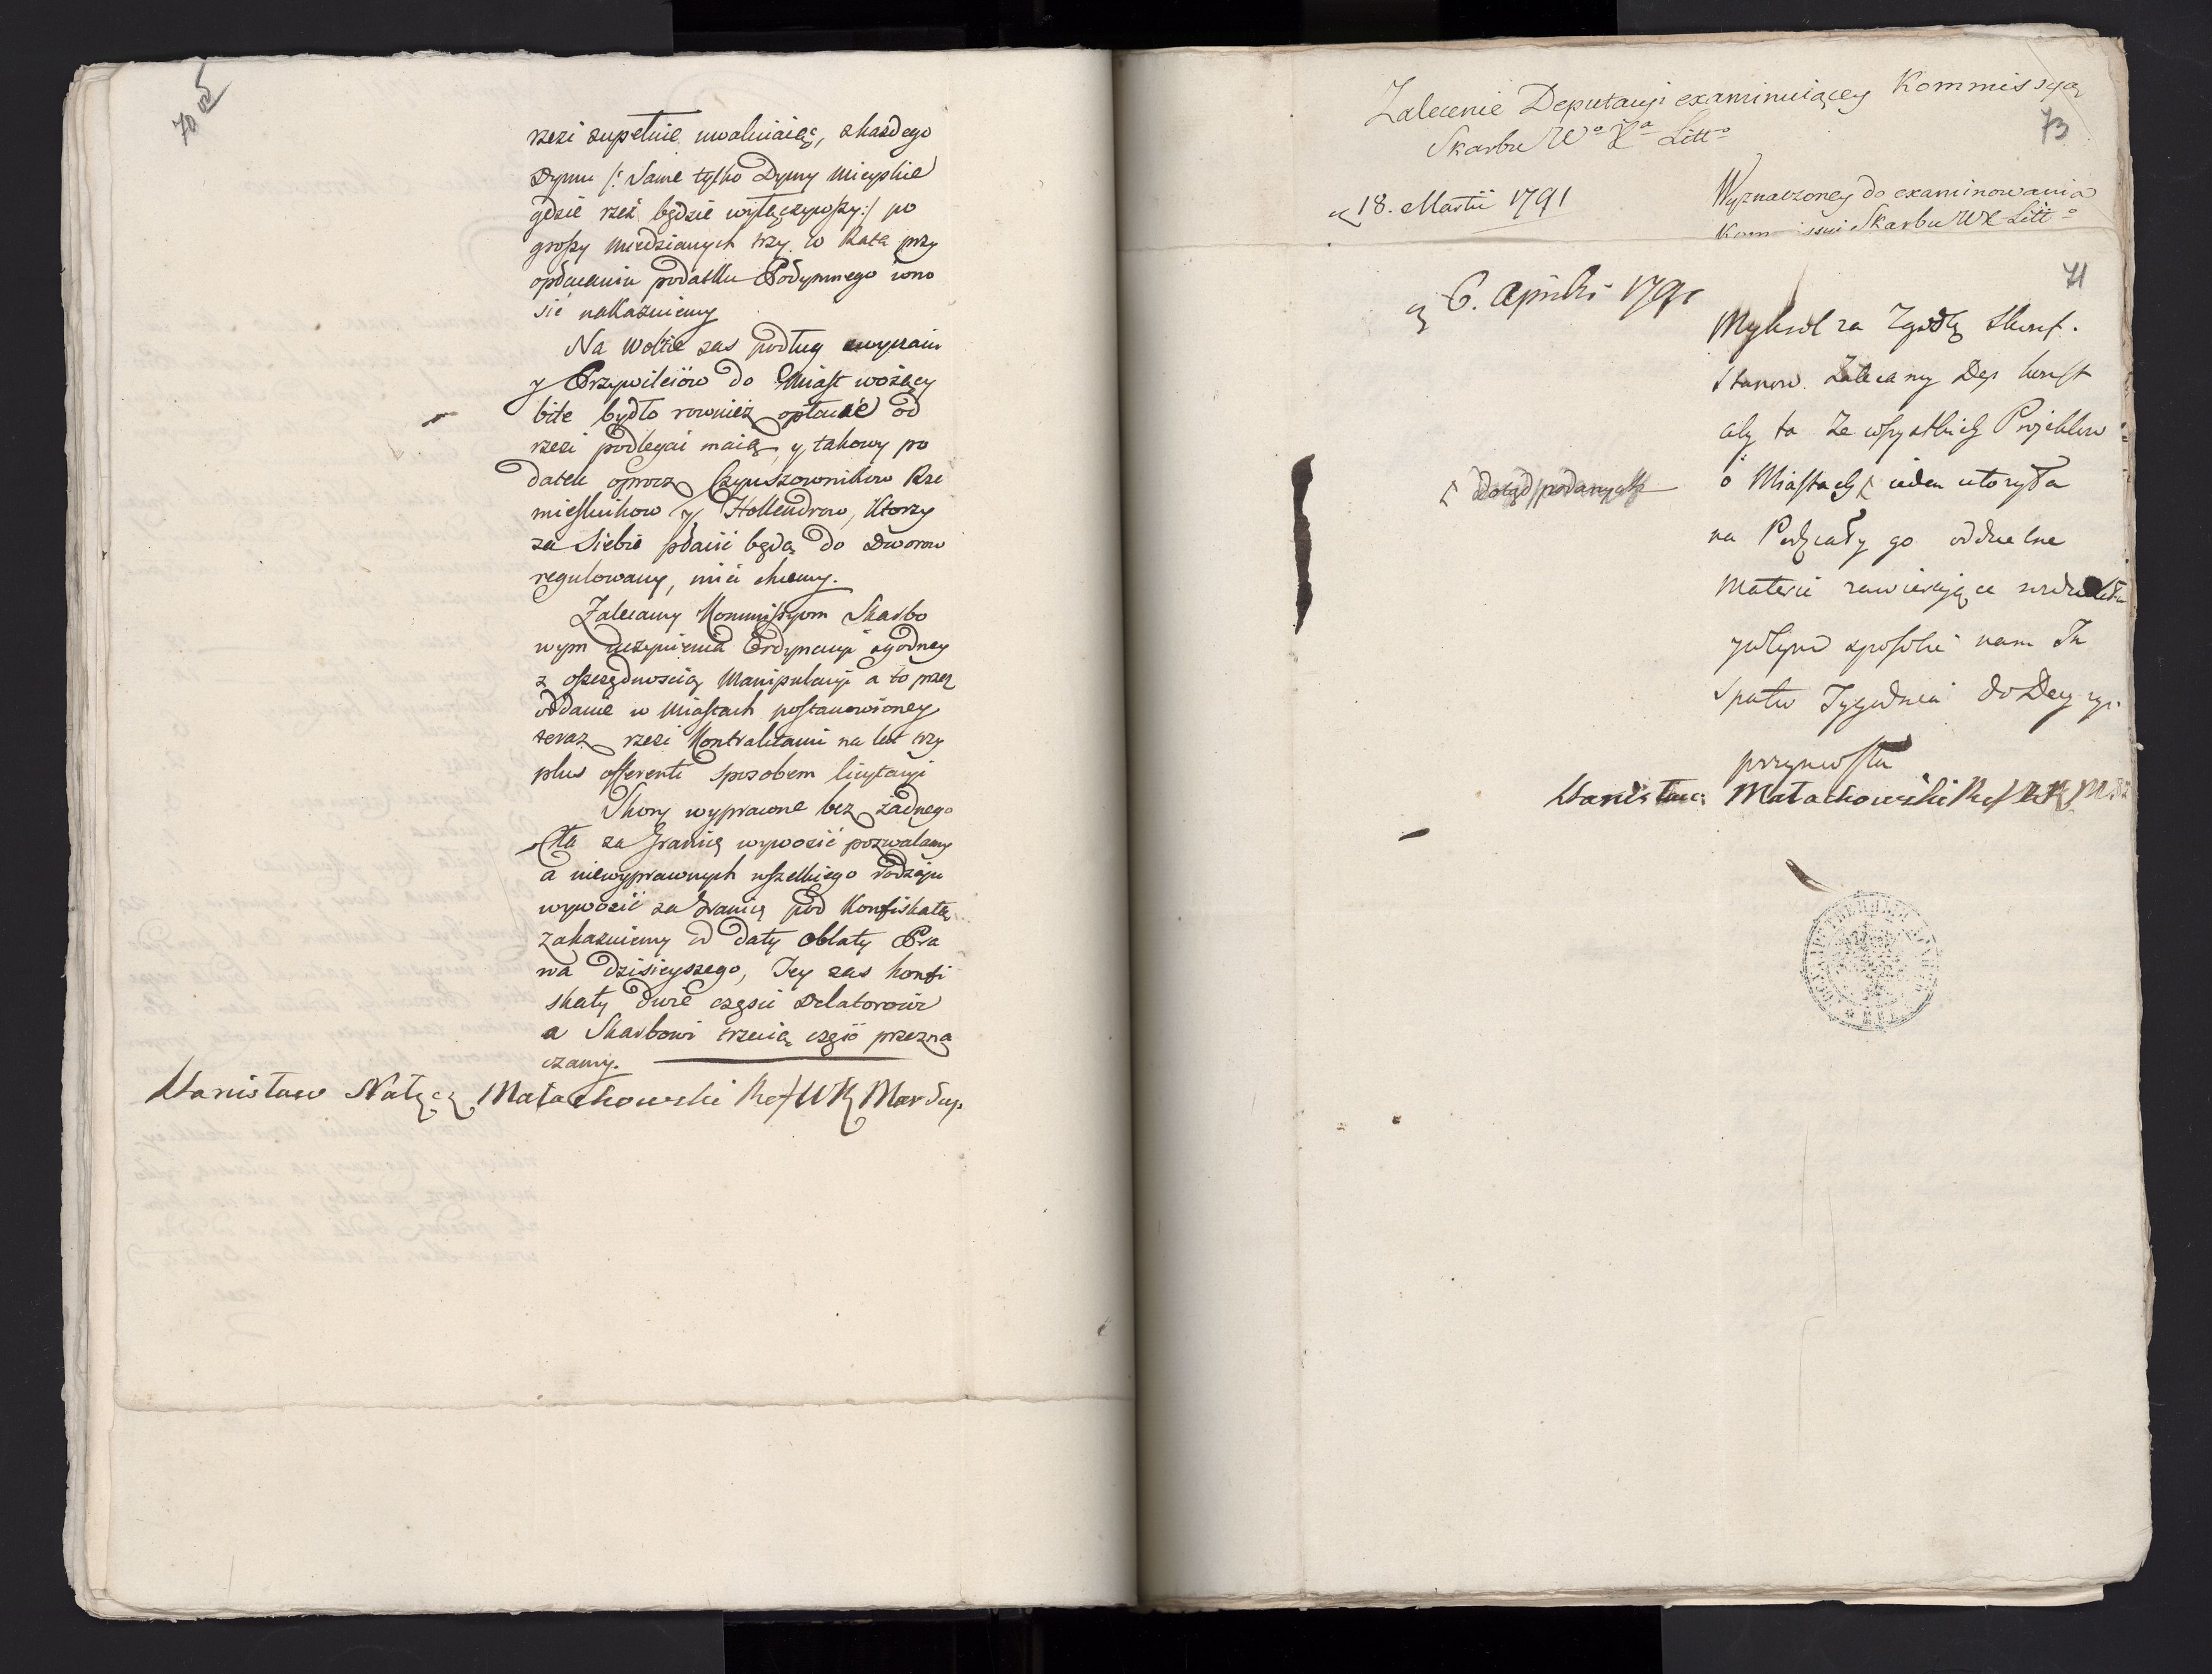 70 od
rzezi zupełnie uwalniaiąc, z każdego
Dymu /: same tylko Dymy mieyskie
gdzie rzeź będzie wyłączywszy :/ po
groszy miedzianych trzy w Ratę przy
opłaceniu podatku Podymnego wno
sić nakazuiemy
Na Wolne zas podług zwyczaiu
y Przywileiów do Miast wożący
bite bydło rowniez opłacie od
rzezi podlegać maią, y takowy po
datek oprocz Czynszownikow Rze
mieslnikow y Hollendrow, ktorzy
za siebie płacić będą do Dworow
regulowany, mieć chcemy.
Zalecamy Kommissyom Skarbo
wym uczynienia Ordynacyi zgodney
z oszczędnoscią Manipulacyi a to przez
oddanie w Miastach postanowioney
teraz rzezi Kontraktami na lat trzy
plus offerenti sposobem licytacyi
Skory wyprawne bez żadnego
Cła za Granicę wywozić pozwalamy
a niewyprawnych wszelkiego rodzaju
wywozić za Granicę pod Konfiskatą
zakazuiemy od daty oblaty Pra
wa dzisieyszego, Tey zas konfi
skaty dwie częsci Delatorowi
a Skarbowi trzecią część przezna
czamy.
Stanisław Nałęcz Małachowski Ref W K Mar Sey.
Zalecenie Deputacyi examinuiącey Kommissyą
Skarbu Wo Xa Litto
73
18. Martii 1791
Wyznaczoney do examinowania
Kommissyi Skarbu WX Litto
71
6. Aprilis 1791
My Król za Zgodą Skonf.
Stanow. Zalecamy Dep
aby ta ze wszystkich Projektow
dotąd podanych
o Miastach ieden utorzyła
na Podziały go oddzielne
Materie zawieraiące
sposobie nam
Tygodnia do Decyzyi
przyniosła
Stanisław Małachowski Ref W K M